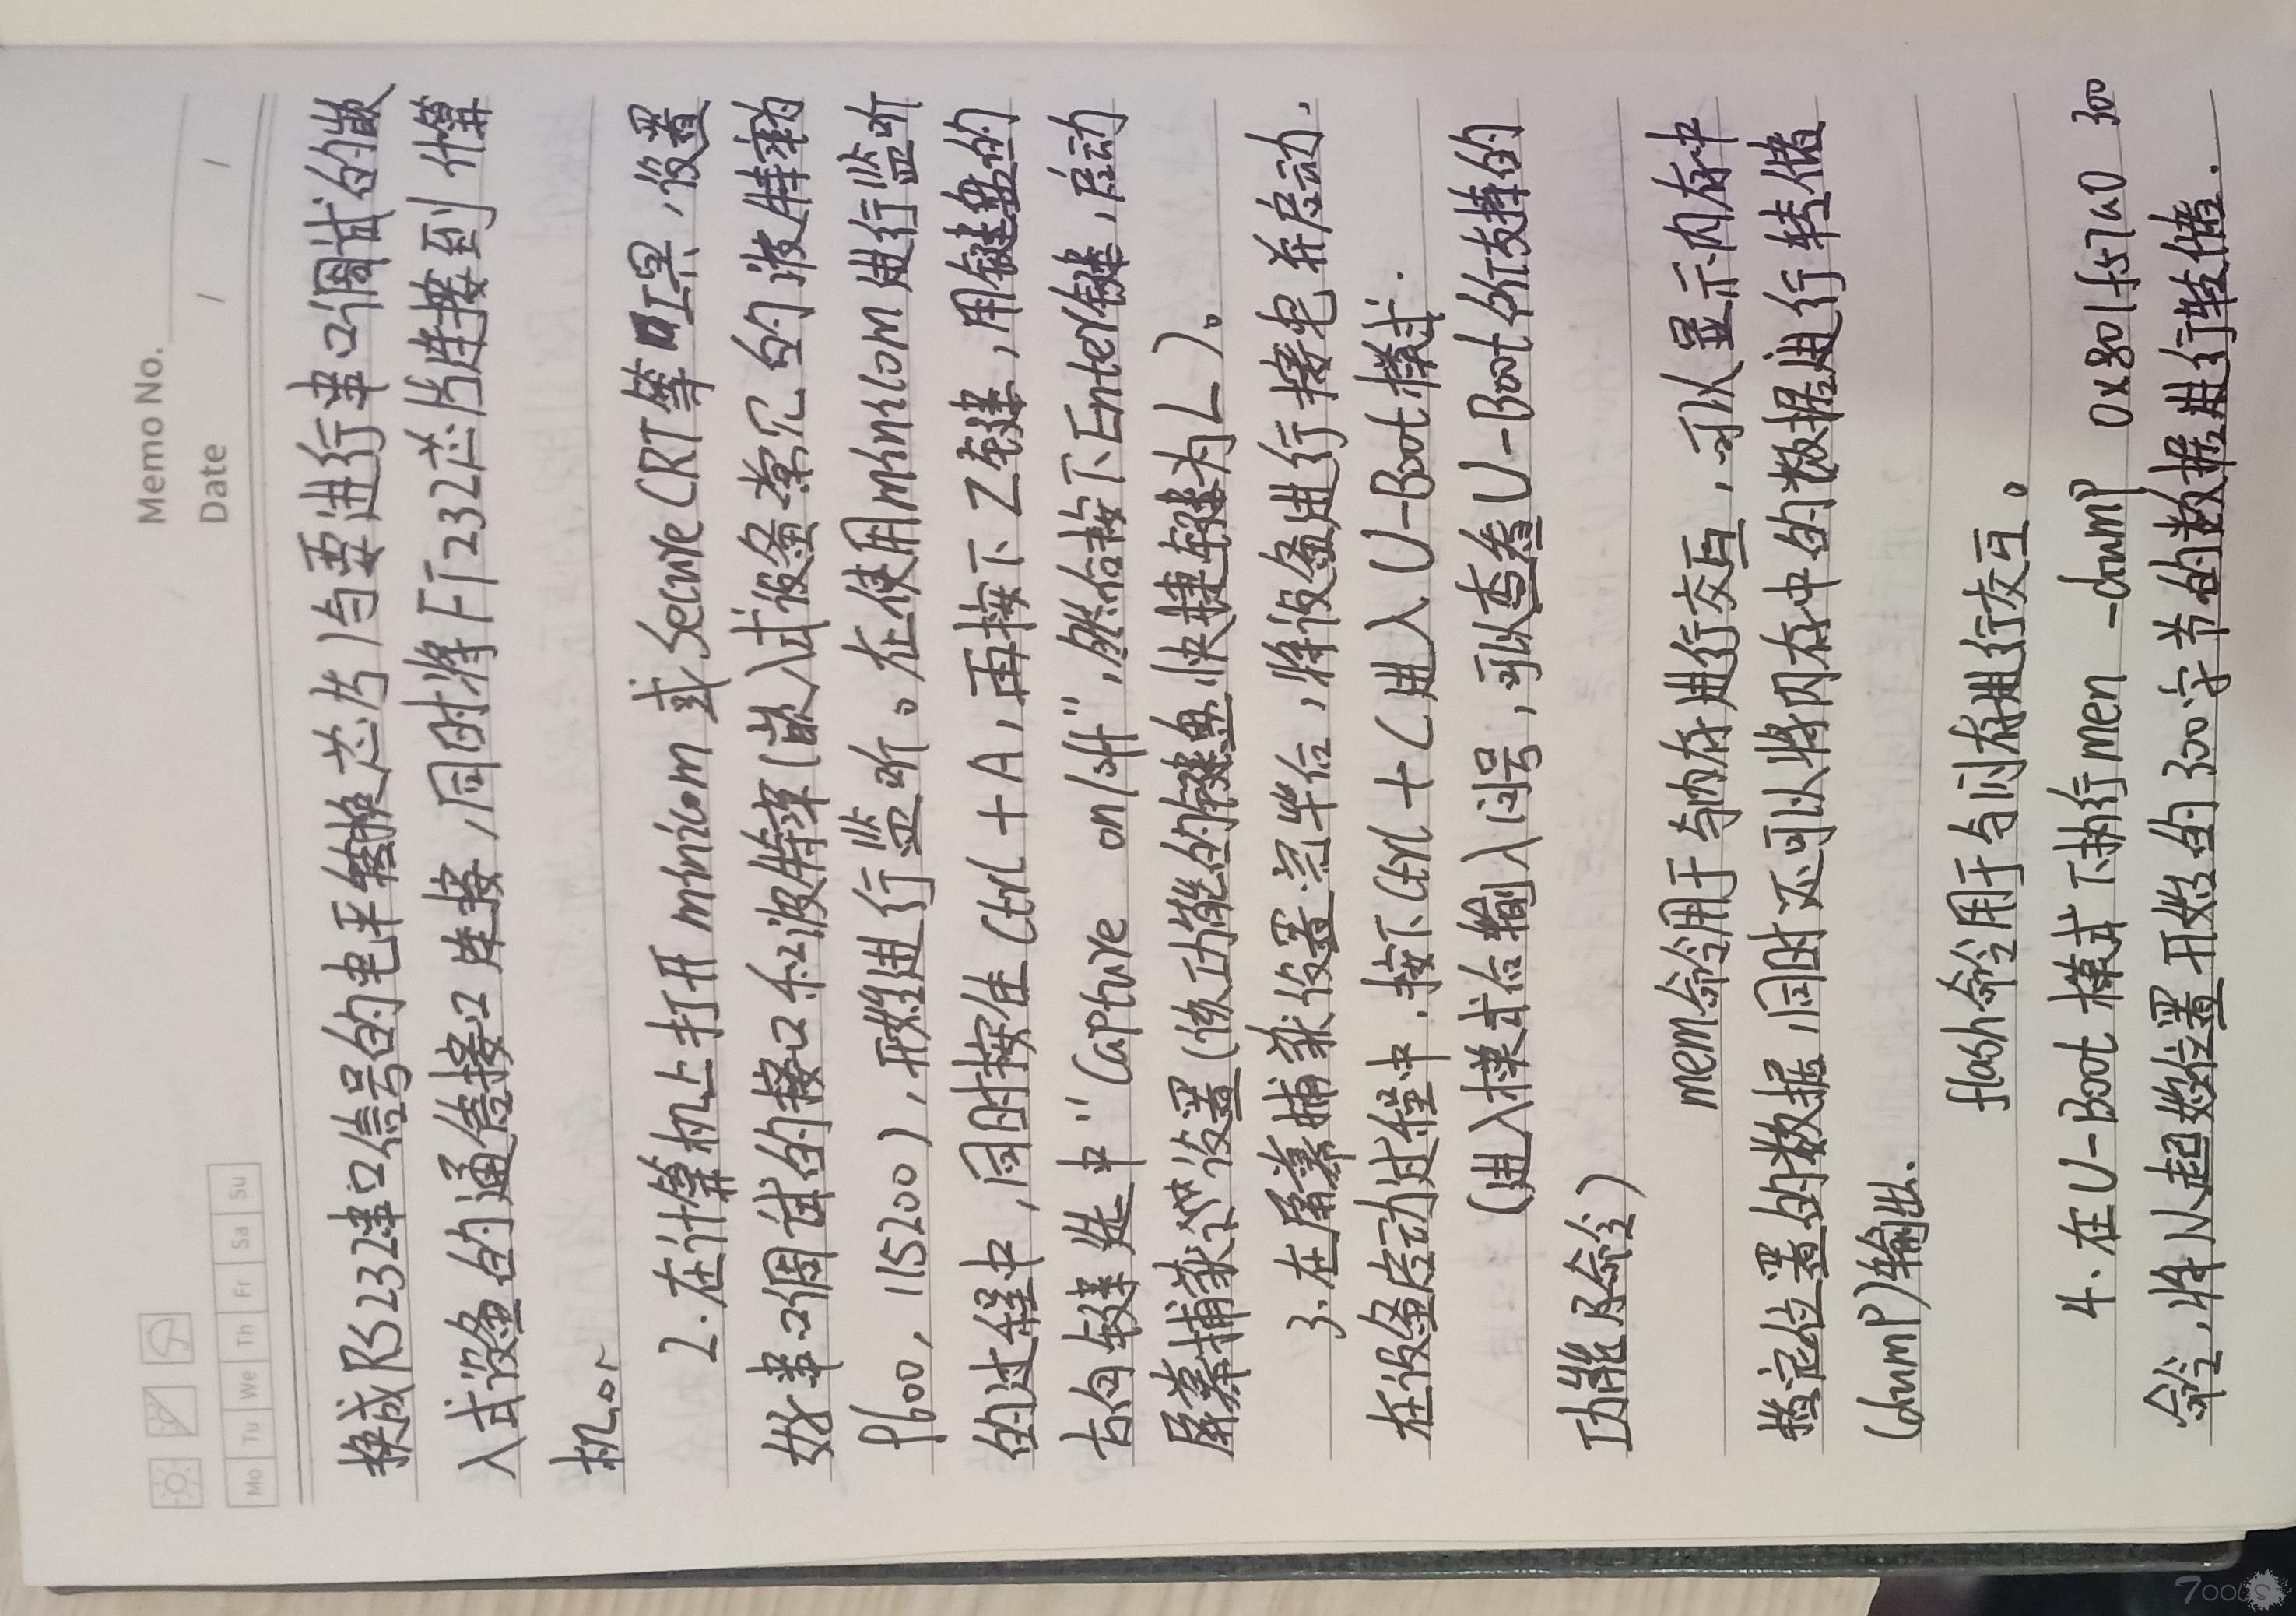 Memo No.
Date / /
Mo Tu We Th Fr Sa Su
换成RS232串口信号的电平转换芯片)与要进行串口调试的嵌
入式设备的通信接口连接,同时将FT232芯片连接到计算
机。
2.在计算机上打开minicom或SecureCRT等工具,设置
好串口调试的接口和波特率(嵌入式设备常见的波特率为
9600,115200),开始进行监听。在使用minicom进行监听
的过程中,同时按住Ctrl+A,再按下Z键,用键盘的
方向键选中"Capture on/off",然后按下Enter键,启动
屏幕捕获设置(该功能的键盘快捷键为L)。
3.在屏幕捕获设置完毕后,将设备进行接电并启动.
在设备启动过程中.按下Ctrl+C进入U-Boot模式.
(进入模式后输入问号,可以查看U-Boot所支持的
功能及命令)
mem命令用于与内存进行交互,可以显示内存中
指定位置的数据,同时还可以将内存中的数据进行转储
(dump)输出.
flash命令用于与闪存进行交互。
4.在U-Boot模式下执行men -dump 0x801f57a0 300
命令,将从起始位置开始的300字节的数据进行转储.
7ools